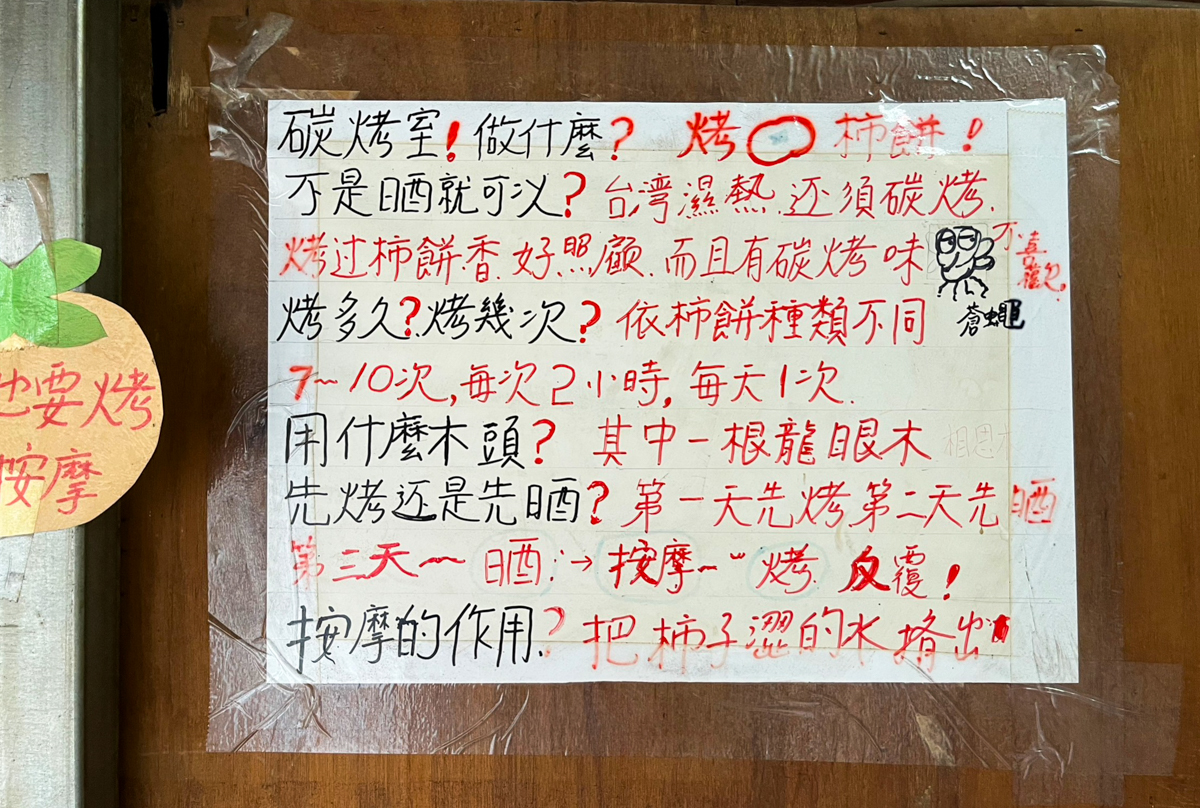 碳烤室!做什麼? 烤 柿餅!
不是晒就可以?台湾濕熱.还須碳烤.
烤过柿餅.香.好照顧.而且有碳烤味
不喜歡.
蒼蠅
烤多久?烤幾次?依柿餅種類不同
7~10次,每次2小時,每天1次.
用什麼木頭? 其中一根龍眼木
相思木
先烤还是先晒?第一天先烤第二天先晒
第三天~晒:→按摩~烤.反覆!
按摩的作用?把柿子澀的水擠出
也要烤.
按摩